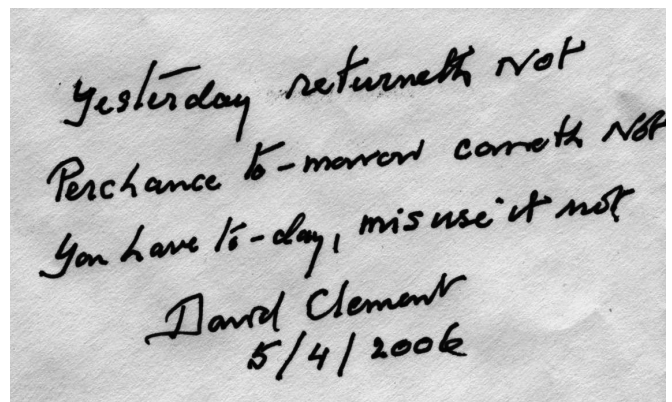 Yesterday returneth Not
Perchance to-morrow cometh Not
You have to-day, misuse it not
David Clement
5/4/2006